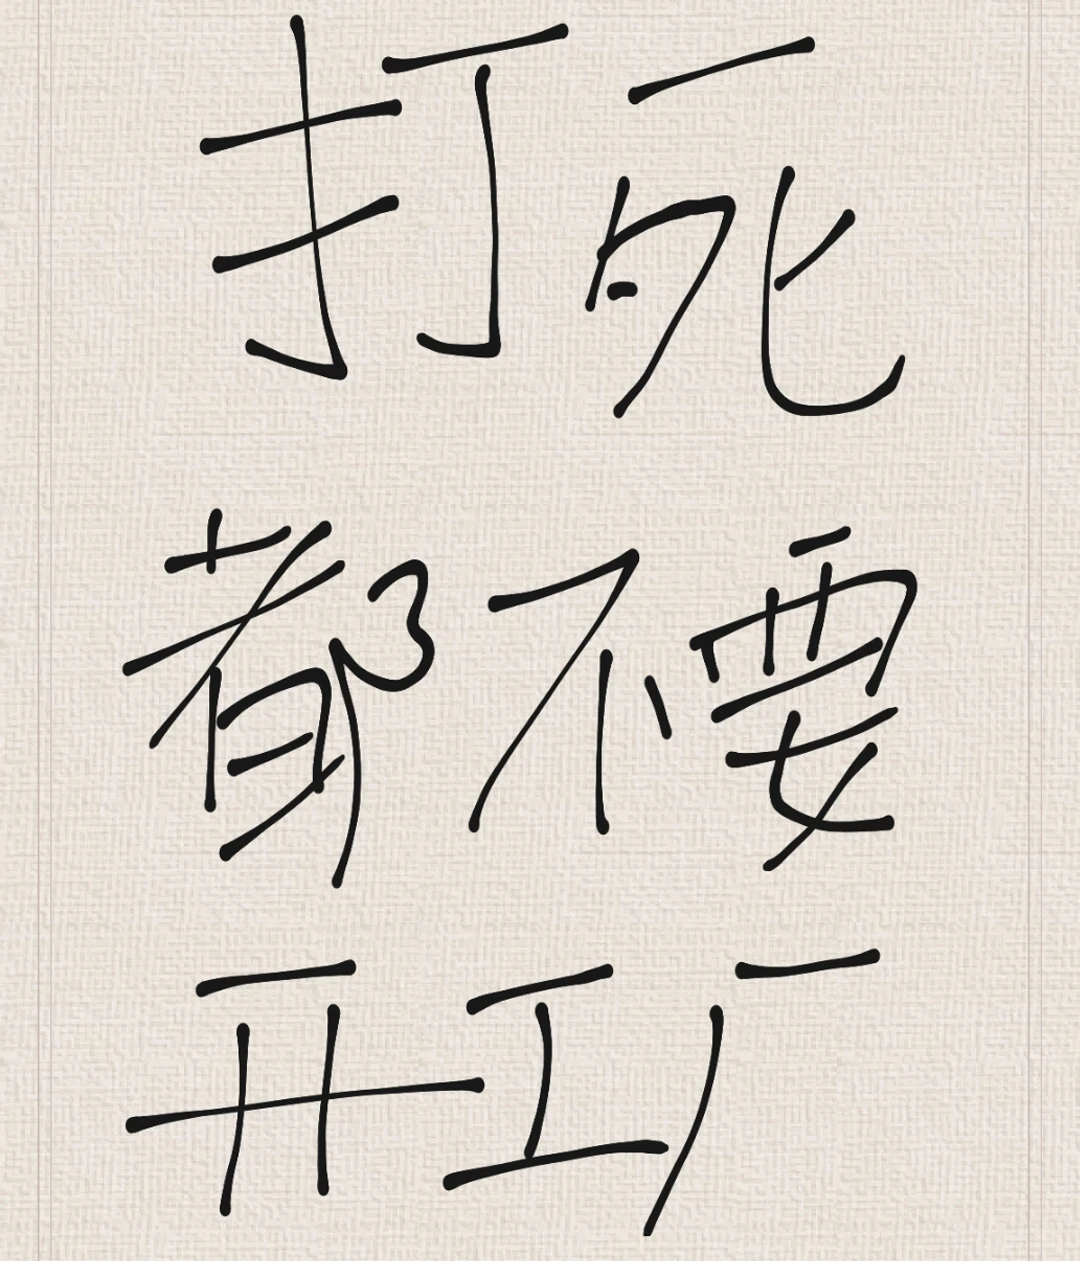 打死
都不要
开工厂